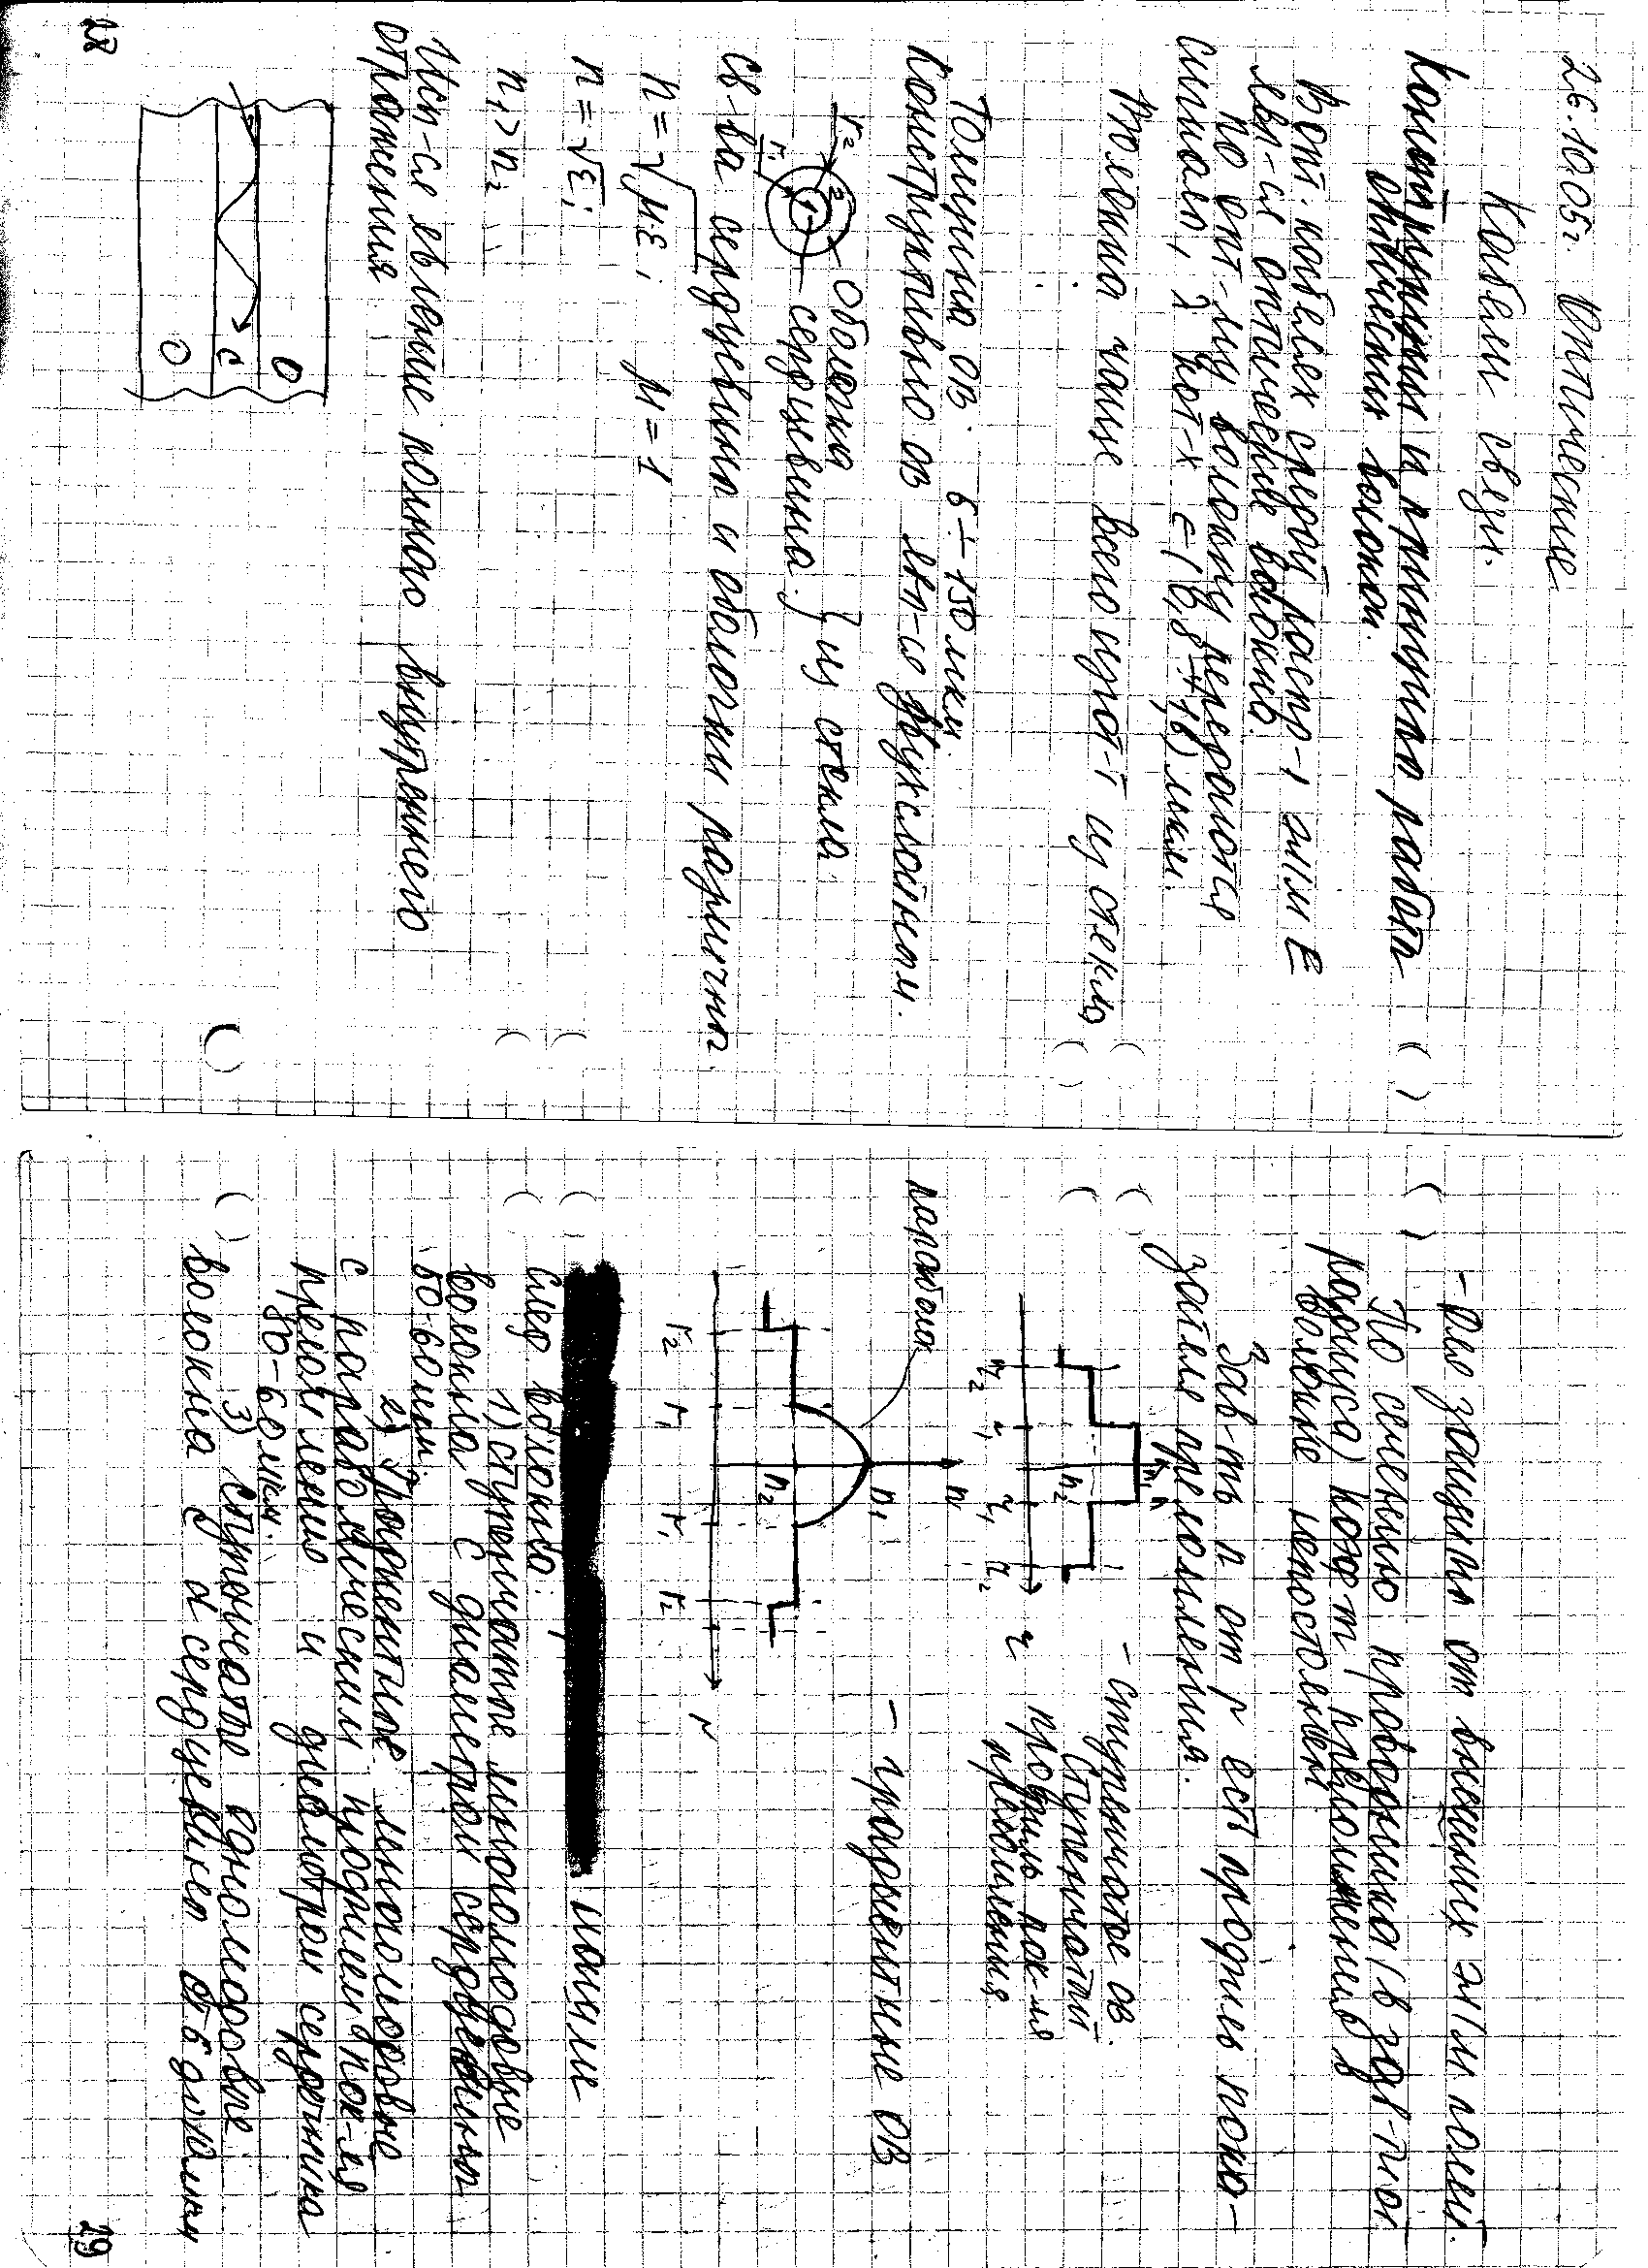 26.10.05г. Оптические
кабели связи.
Конструкции и принцип работы
оптических волокон.
В опт. кабелях средой распр-я ЭМИ Е
явл-ся оптические волокна.
По опт-му волокну передаются
сигналы, λ кот-х ∈ (0,8÷1,6) мкм.
Волокна чаще всего изгот-т из стекла
Толщина ОВ 6÷150 мкм.
Конструктивно ОВ явл-ся двухслойным.
r₂
r₁
оболочка
сердцевина } из стекла
Св-ва сердцевины и оболочки различны
n = √με ; μ = 1
n = √ε ;
n₁ > n₂
Исп-ся явление полного внутреннего
отражения
О
С
О
28
- для защиты от внешних ЭМ полей.
По сечению проводника (в зав-ти от
радиуса) коэф-т преломления в
волокне непостоянен
Зав-ть n от r есть профиль пока-
зателя преломления.
n₁ n
n₂
r₂ r₁ r₁ r₂ r
- ступенчатые ОВ.
Ступенчатый
профиль пок-ля
преломления
парабола
n
n₁
n₂
r₂ r₁ r₁ r₂ r
- градиентные ОВ
волокна:
1) ступенчатые многомодовые
волокна с диаметром сердцевины
50-60 мкм.
2) Градиентные многомодовые
с параболическим профилем пок-ля
преломления и диаметром сердечника
50-60 мкм.
3) ступенчатые одномодовые
волокна с d сердцевины
29